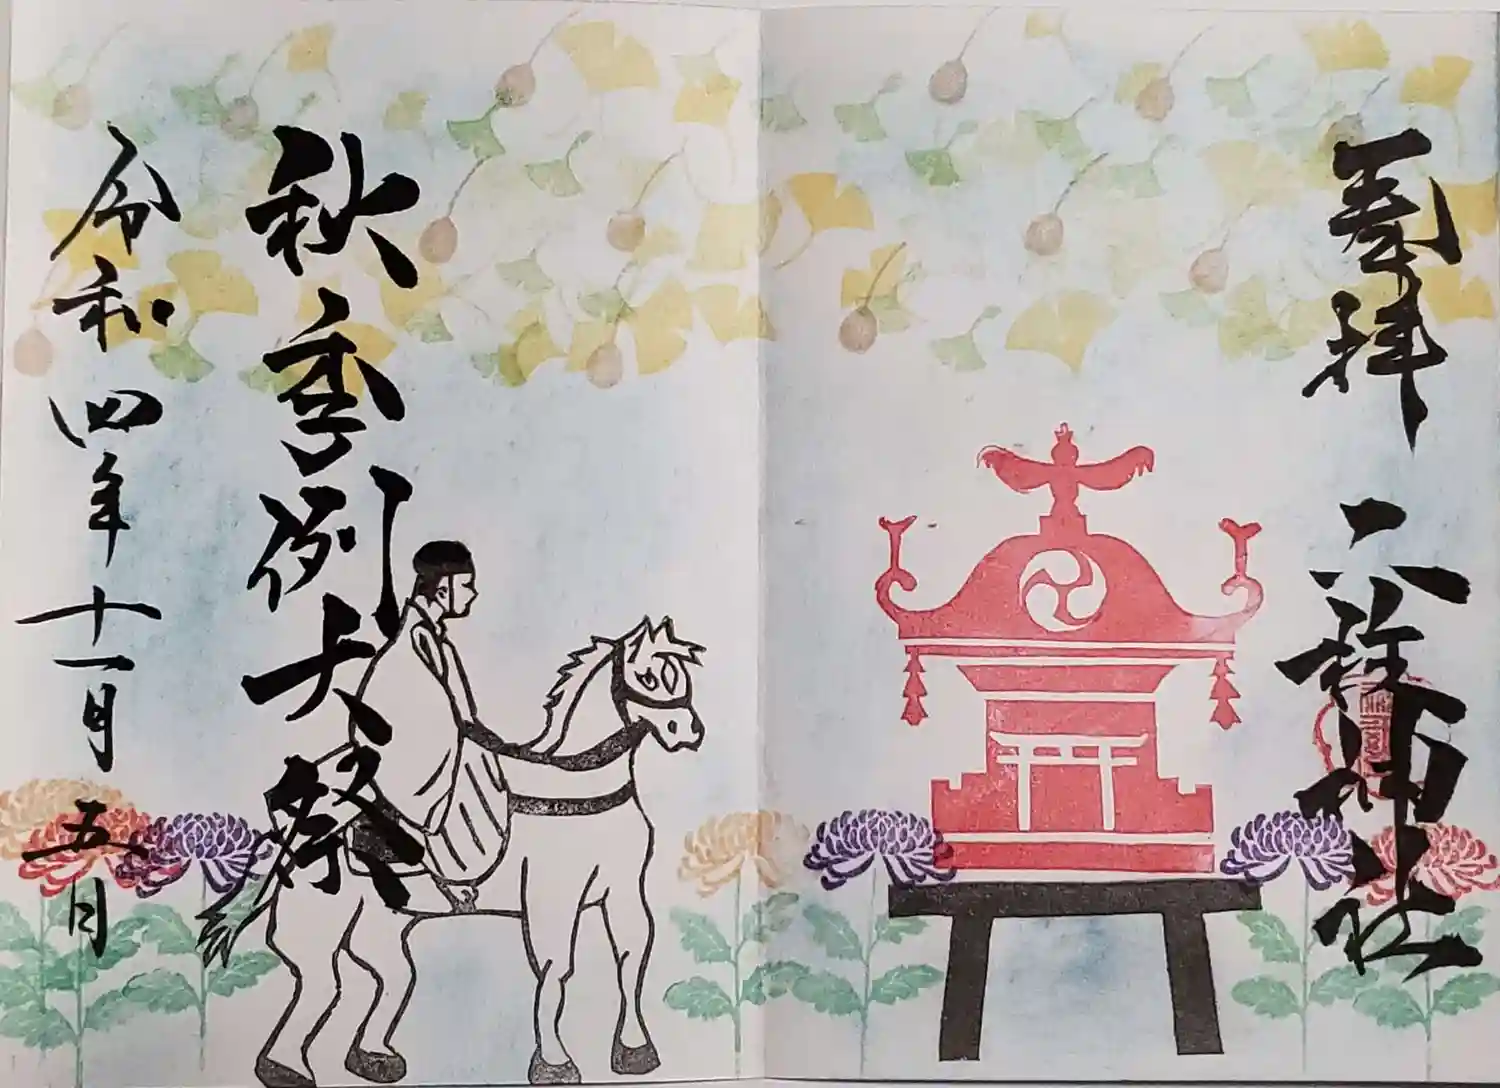 奉拝
六 神社
秋季例大祭
令和四年十一月五日